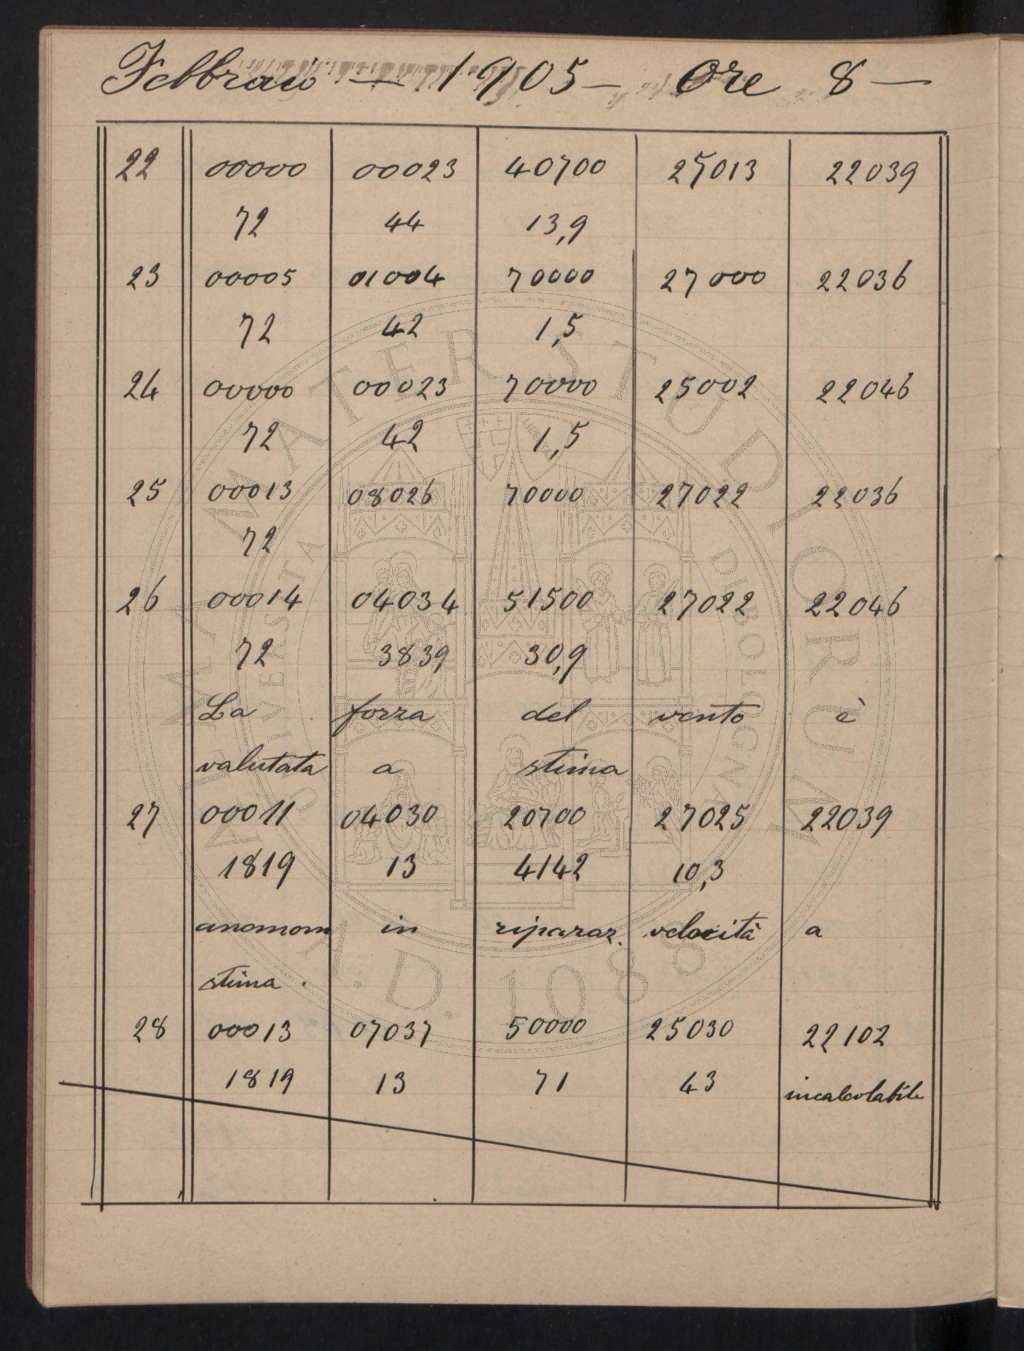 Febbraio — 1905 — Ore 8 —
22 00000 00023 40700 25013 22039
72 44 13,9
23 00005 01004 70000 27000 22036
72 42 1,5
24 00000 00023 70000 25002 22046
72 42 1,5
25 00013 08026 70000 27022 22036
72
26 00014 04034 51500 27022 22046
72 3839 30,9
La forza del vento è
valutata a stima
27 00011 04030 20700 27025 22039
1819 13 4142 10,3
anomom in riparaz. velocità a
stima .
28 00013 07037 50000 25030 22102
1819 13 71 43 incalcolabile
ALMA MATER STUDIORUM
UNIVERSITÀ DI BOLOGNA
A.D. 1088